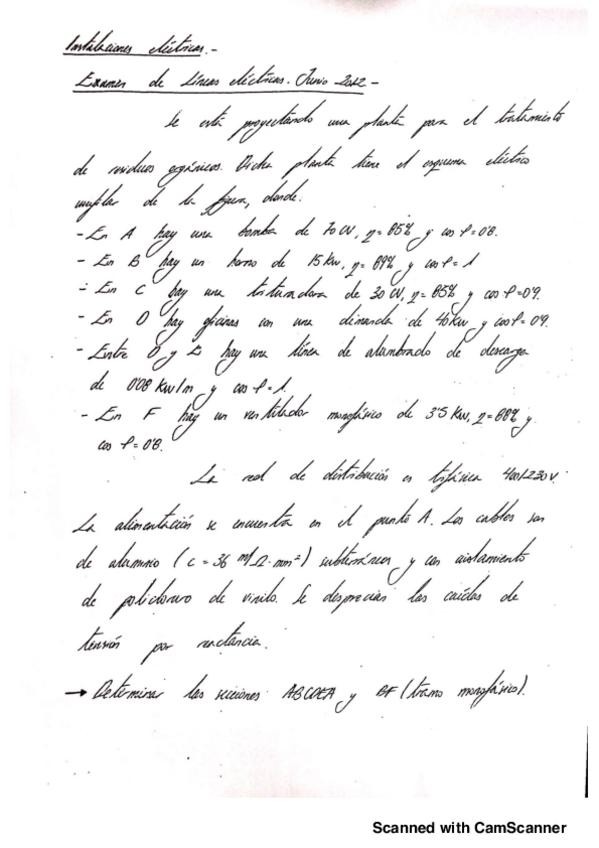 Instalaciones eléctricas.-
Examen de Líneas eléctricas. Junio 2012 -
Se está proyectando una planta para el tratamiento
de residuos orgánicos. Dicha planta tiene el esquema eléctrico
unifilar de la figura, donde.
- En A hay una bomba de 70 CV, η = 85% y cos φ = 0'8.
- En B hay un horno de 15 kW, η = 89% y cos φ = 1
- En C hay una trituradora de 30 CV, η = 85% y cos φ = 0'9.
- En D hay oficinas con una demanda de 40 kW y cos φ = 0'9.
- Entre D y E hay una línea de alumbrado de descarga
de 0'08 kW/m y cos φ = 1.
- En F hay un ventilador monofásico de 3'5 kW, η = 88% y
cos φ = 0'8.
La red de distribución es trifásica 400/230 V.
La alimentación se encuentra en el punto A. Los cables son
de aluminio (c = 36 m/Ω·mm²) subterráneos y con aislamiento
de policloruro de vinilo. Se desprecian las caídas de
tensión por reactancia.
→ Determinar las secciones ABCDEA y BF (tramo monofásico).
Scanned with CamScanner